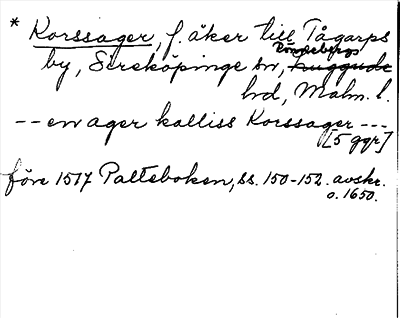 * Korssager, f. åker till Tågarps
Rönnebergs
by, Sireköpinge sn, Luggude
hd, Malm. l.
-- en ager kalliss Korssager ---
[5 ggr]
före 1517 Palteboken, ss. 150-152. avskr.
o. 1650.